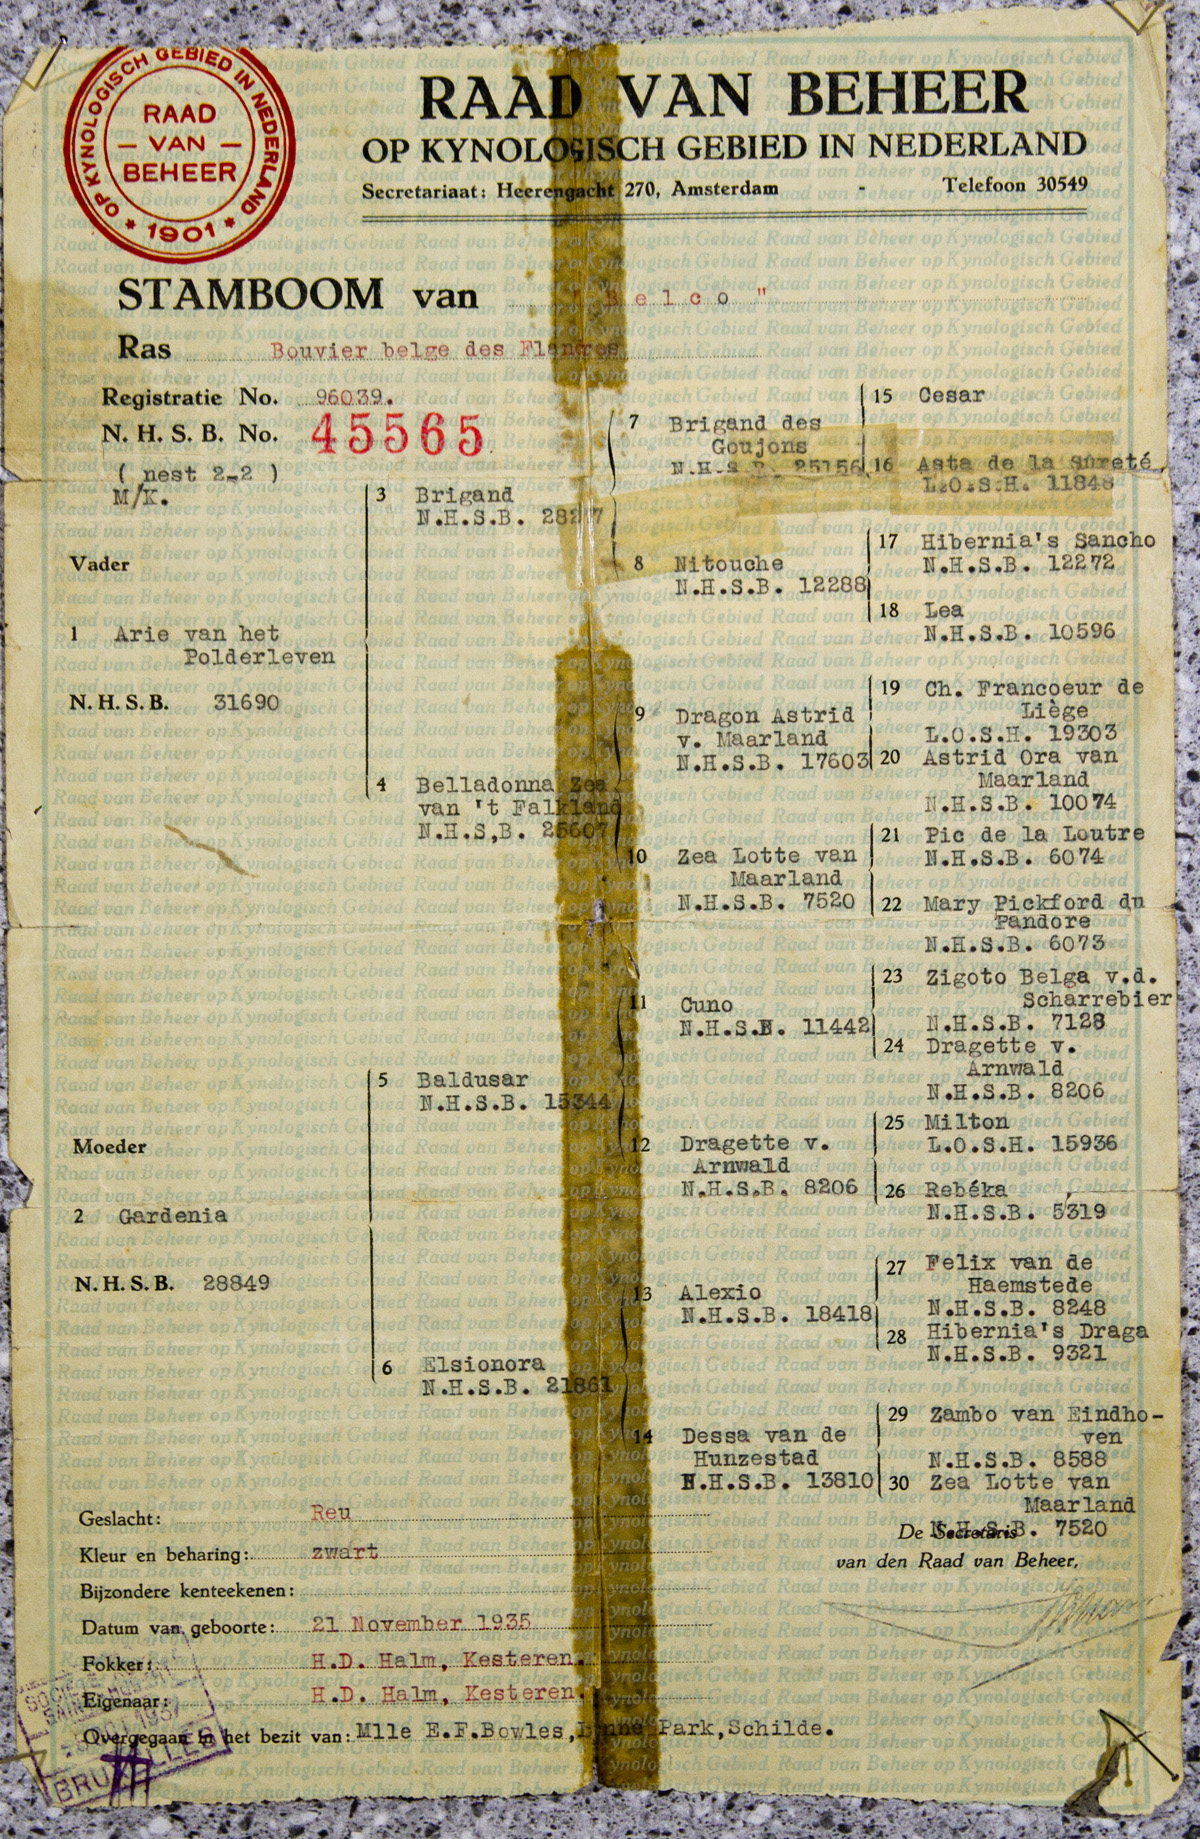 OP KYNOLOGISCH GEBIED IN NEDERLAND
RAAD
VAN
BEHEER
* 1901 *
RAAD VAN BEHEER
OP KYNOLOGISCH GEBIED IN NEDERLAND
Secretariaat: Heerengacht 270, Amsterdam - Telefoon 30549
STAMBOOM van "Belco"
Ras Bouvier belge des Flandres
Registratie No. 96039.
N. H. S. B. No. 45565
( nest 2-2 )
M/K.
Vader
1 Arie van het
Polderleven
N. H. S. B. 31690
Moeder
2 Gardenia
N. H. S. B. 28849
3 Brigand
N.H.S.B. 28277
4 Belladonna Zea
van 't Falkland
N.H.S.B. 25607
5 Baldusar
N.H.S.B. 15344
6 Elsionora
N.H.S.B. 21861
7 Brigand des
Goujons
N.H.S.B. 25156
8 Nitouche
N.H.S.B. 12288
9 Dragon Astrid
v. Maarland
N.H.S.B. 17603
10 Zea Lotte van
Maarland
N.H.S.B. 7520
11 Cuno
N.H.S.B. 11442
12 Dragette v.
Arnwald
N.H.S.B. 8206
13 Alexio
N.H.S.B. 18418
14 Dessa van de
Hunzestad
N.H.S.B. 13810
15 Cesar
16 Asta de la Sûreté
L.O.S.H. 11848
17 Hibernia's Sancho
N.H.S.B. 12272
18 Lea
N.H.S.B. 10596
19 Ch. Francoeur de
Liège
L.O.S.H. 19303
20 Astrid Ora van
Maarland
N.H.S.B. 10074
21 Pic de la Loutre
N.H.S.B. 6074
22 Mary Pickford du
Pandore
N.H.S.B. 6073
23 Zigoto Belga v.d.
Scharrebier
N.H.S.B. 7128
24 Dragette v.
Arnwald
N.H.S.B. 8206
25 Milton
L.O.S.H. 15936
26 Rebéka
N.H.S.B. 5319
27 Felix van de
Haemstede
N.H.S.B. 8248
28 Hibernia's Draga
N.H.S.B. 9321
29 Zambo van Eindho-
ven
N.H.S.B. 8588
30 Zea Lotte van
Maarland
N.H.S.B. 7520
De Secretaris
van den Raad van Beheer,
Geslacht: Reu
Kleur en beharing: zwart
Bijzondere kenteekenen:
Datum van geboorte: 21 November 1935
Fokker: H.D. Halm, Kesteren.
Eigenaar: H.D. Halm, Kesteren.
Overgegaan in het bezit van: Mlle E.F.Bowles, Lynne Park, Schilde.